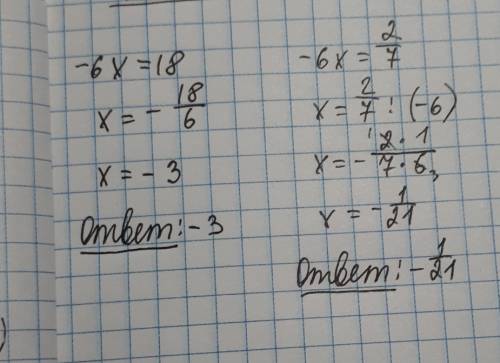 -6x = 18
x = - 18/6
x = - 3
Ответ: - 3
-6x = 2/7
x = 2/7 : (-6)
x = - 2 · 1 / 7 · 6 1 3
x = - 1/21
Ответ: - 1/21